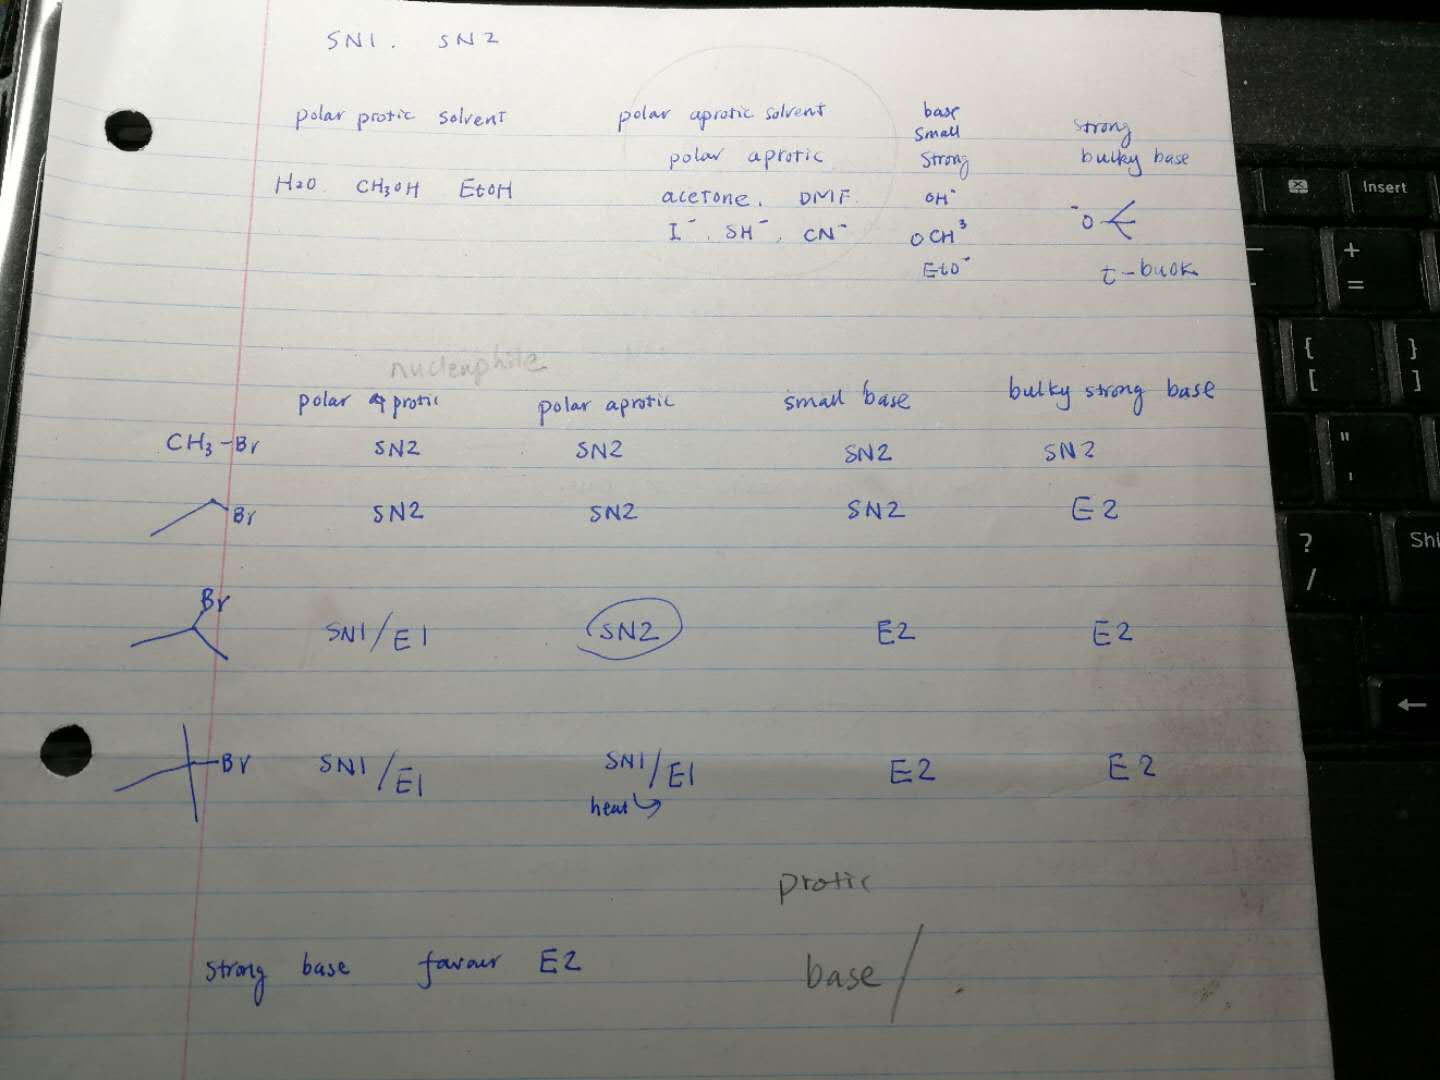 SN1. SN2
polar protic solvent polar aprotic solvent base small strong strong bulky base
polar aprotic
H2O CH3OH EtOH acetone. DMF. OH⁻ ⁻O
I⁻. SH⁻. CN⁻ OCH³
EtO⁻ t-buOK
nucleophile
polar protic polar aprotic small base bulky strong base
CH3-Br SN2 SN2 SN2 SN2
Br SN2 SN2 SN2 E2
Br SN1/E1 SN2 E2 E2
Br SN1/E1 SN1/E1 E2 E2
heat
protic
strong base favour E2 base/.